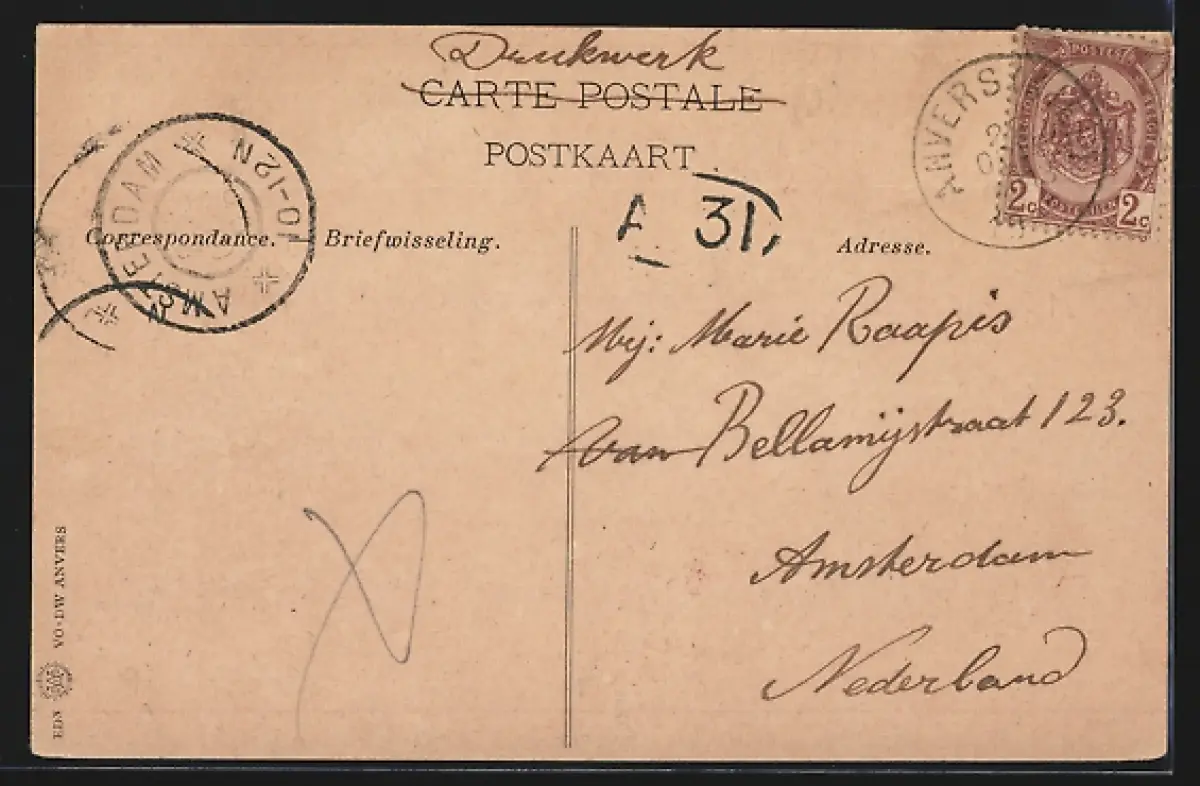 Drukwerk
CARTE POSTALE
POSTKAART
AMSTERDAM
10-12N
ANVERS
POSTES
2c 2c
A 31
Correspondance. — Briefwisseling.
Adresse.
Mej: Marie Raapis
van Bellamijstraat 123.
Amsterdam
Nederland
EDN VO-DW ANVERS